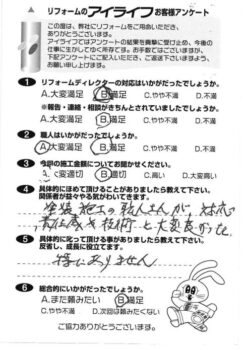 リフォームのアイライフ お客様アンケート
この度は、弊社にリフォームをご用命いただき、
ありがとうございます。
アイライフではアンケートの結果を真摯に受け止め、今後の
仕事に生かしてゆく所存です。お手数ではございますが、
下記アンケートにご記入いただき、ご返送下さいますよう、
お願い申し上げます。
1 リフォームディレクターの対応はいかがだったでしょうか。
A.大変満足 B.満足 C.やや不満 D.不満
※報告・連絡・相談がきちんとされていましたでしょうか。
A.大変満足 B.満足 C.やや不満 D.不満
2 職人はいかがだったでしょうか。
A.大変満足 B.満足 C.やや不満 D.不満
3 今回の施工金額についてお聞かせください。
く変適切 B.適切 C.高い D.大変高い
4 具体的にほめて頂けることがありましたら教えて下さい。
関係者が益々やる気がわいてきます。
塗装施工の職人さんが、対応
責任感や技術と大変良かった
5 具体的に叱って頂ける事がありましたら教えて下さい。
反省し、成長に役立てます。
特にありません
6 総合的にいかがだったでしょうか。
A.また頼みたい B.満足
C.やや不満 D.次回は頼みたくない
ご協力ありがとうございます。